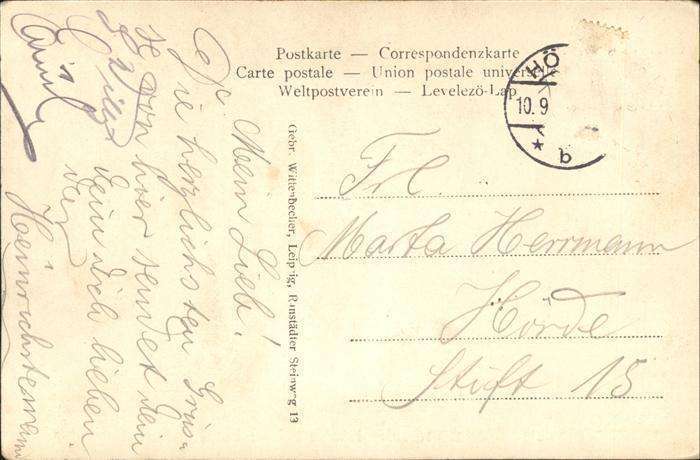 Postkarte — Correspondenzkarte
Carte postale — Union postale universelle
Weltpostverein — Levelezö-Lap
HÖ
10.9
* b
Gebr. Wittenbecher, Leipzig, Ranstädter Steinweg 13
Frl.
Marta Herrmann
Hörde
Stift 15
Mein Lieb!
Die herzlichsten Grüs-
se von hier sendet dein
dein dich lieben
der
Heinrich
Willy
Emil